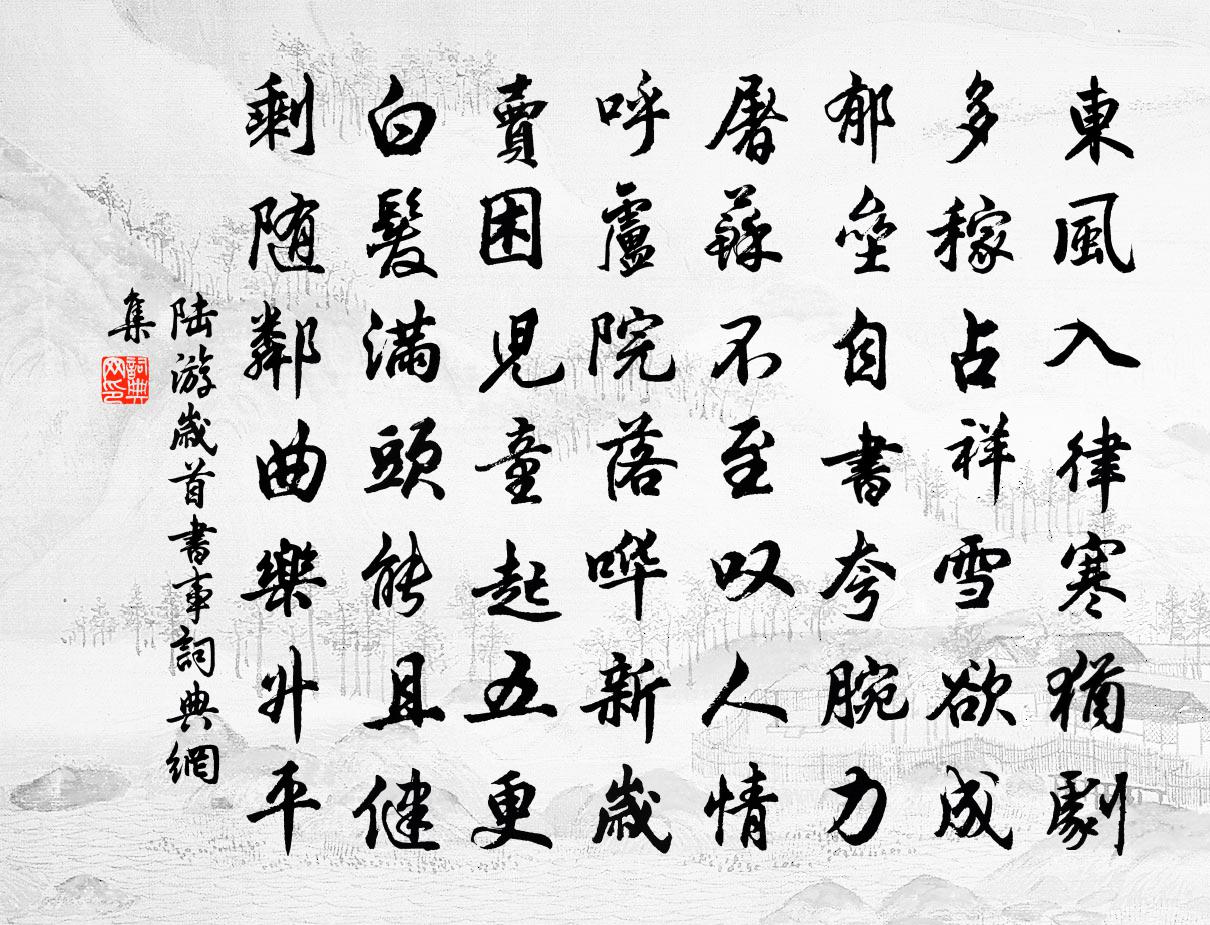 東風入律寒猶劇
多稼占祥雪欲成
郁壘自書夸腕力
屠蘇不至叹人情
呼盧院落哗新歲
賣困児童起五更
白髮满頭能且健
剩随鄰曲樂升平
陆游歲首書事詞典網
集
詞典
网印